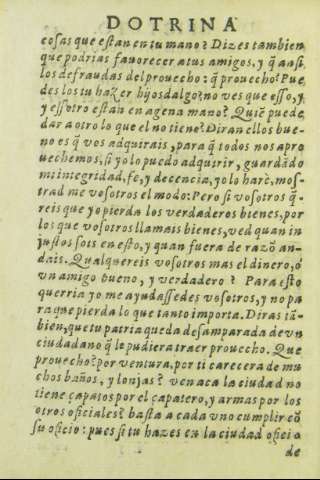 DOTRINA
cosas que estan en tu mano? Dizes tambien,
que podrias fauorecer a tus amigos, y q̃ aasi,
los defraudas del prouecho: q̃ prouecho? Pue
des los tu hazer hijosdalgo? no ves que esso, y
y essotro estan en agena mano? Quiẽ puede
dar a otro lo que el no tiene? Diran ellos bue-
no es q̃ vos adquirais, para q̃ todos nos apro
uechemos, si yo lo puedo adquirir, guardãdo
mi integridad, fe, y decencia, yo lo harè, mos-
trad me vosotros el modo: Pero si vosotros q̃-
reis que yo pierda los verdaderos bienes, por
los que vosotros llamais bienes, ved quan in
justos sois en esto, y quan fuera de razõ an-
dais. Qual quereis vosotros mas el dinero, ò
vn amigo bueno, y verdadero? Para esto
querria yo me ayudassedes vosotros, y no pa
ra que pierda lo que tanto importa. Diras tã-
bien, que tu patria queda desamparada de vn
ciudadano q̃ le pudiera traer prouecho. Que
prouecho? por ventura, por ti carecera de mu
chos baños, y lonjas? ven aca la ciudad no
tiene çapatos por el çapatero, y armas por los
otros oficiales? basta a cada vno cumplir cõ
su oficio: pues si tu hazes en la ciudad oficio
de